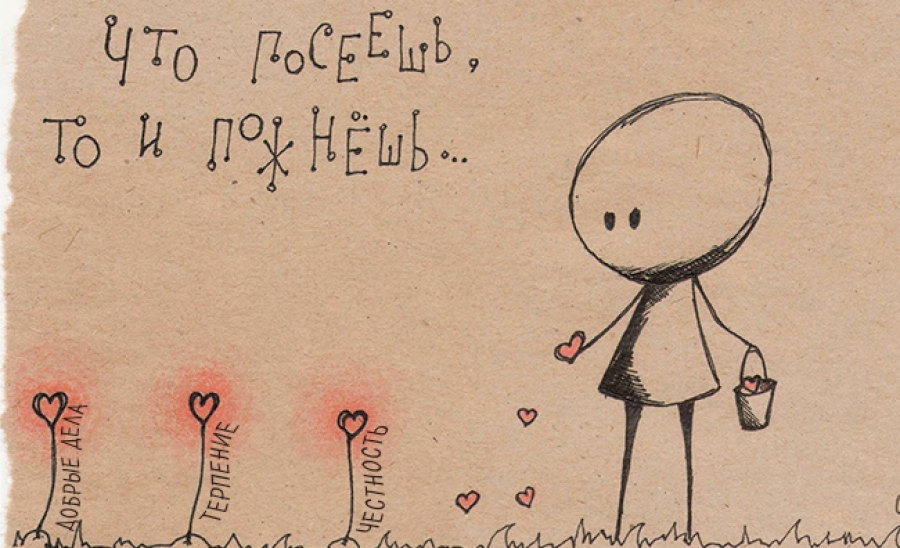 ЧТО ПОСЕЕШЬ,
ТО И ПОЖНЁШЬ...
ДОБРЫЕ ДЕЛА
ТЕРПЕНИЕ
ЧЕСТНОСТЬ